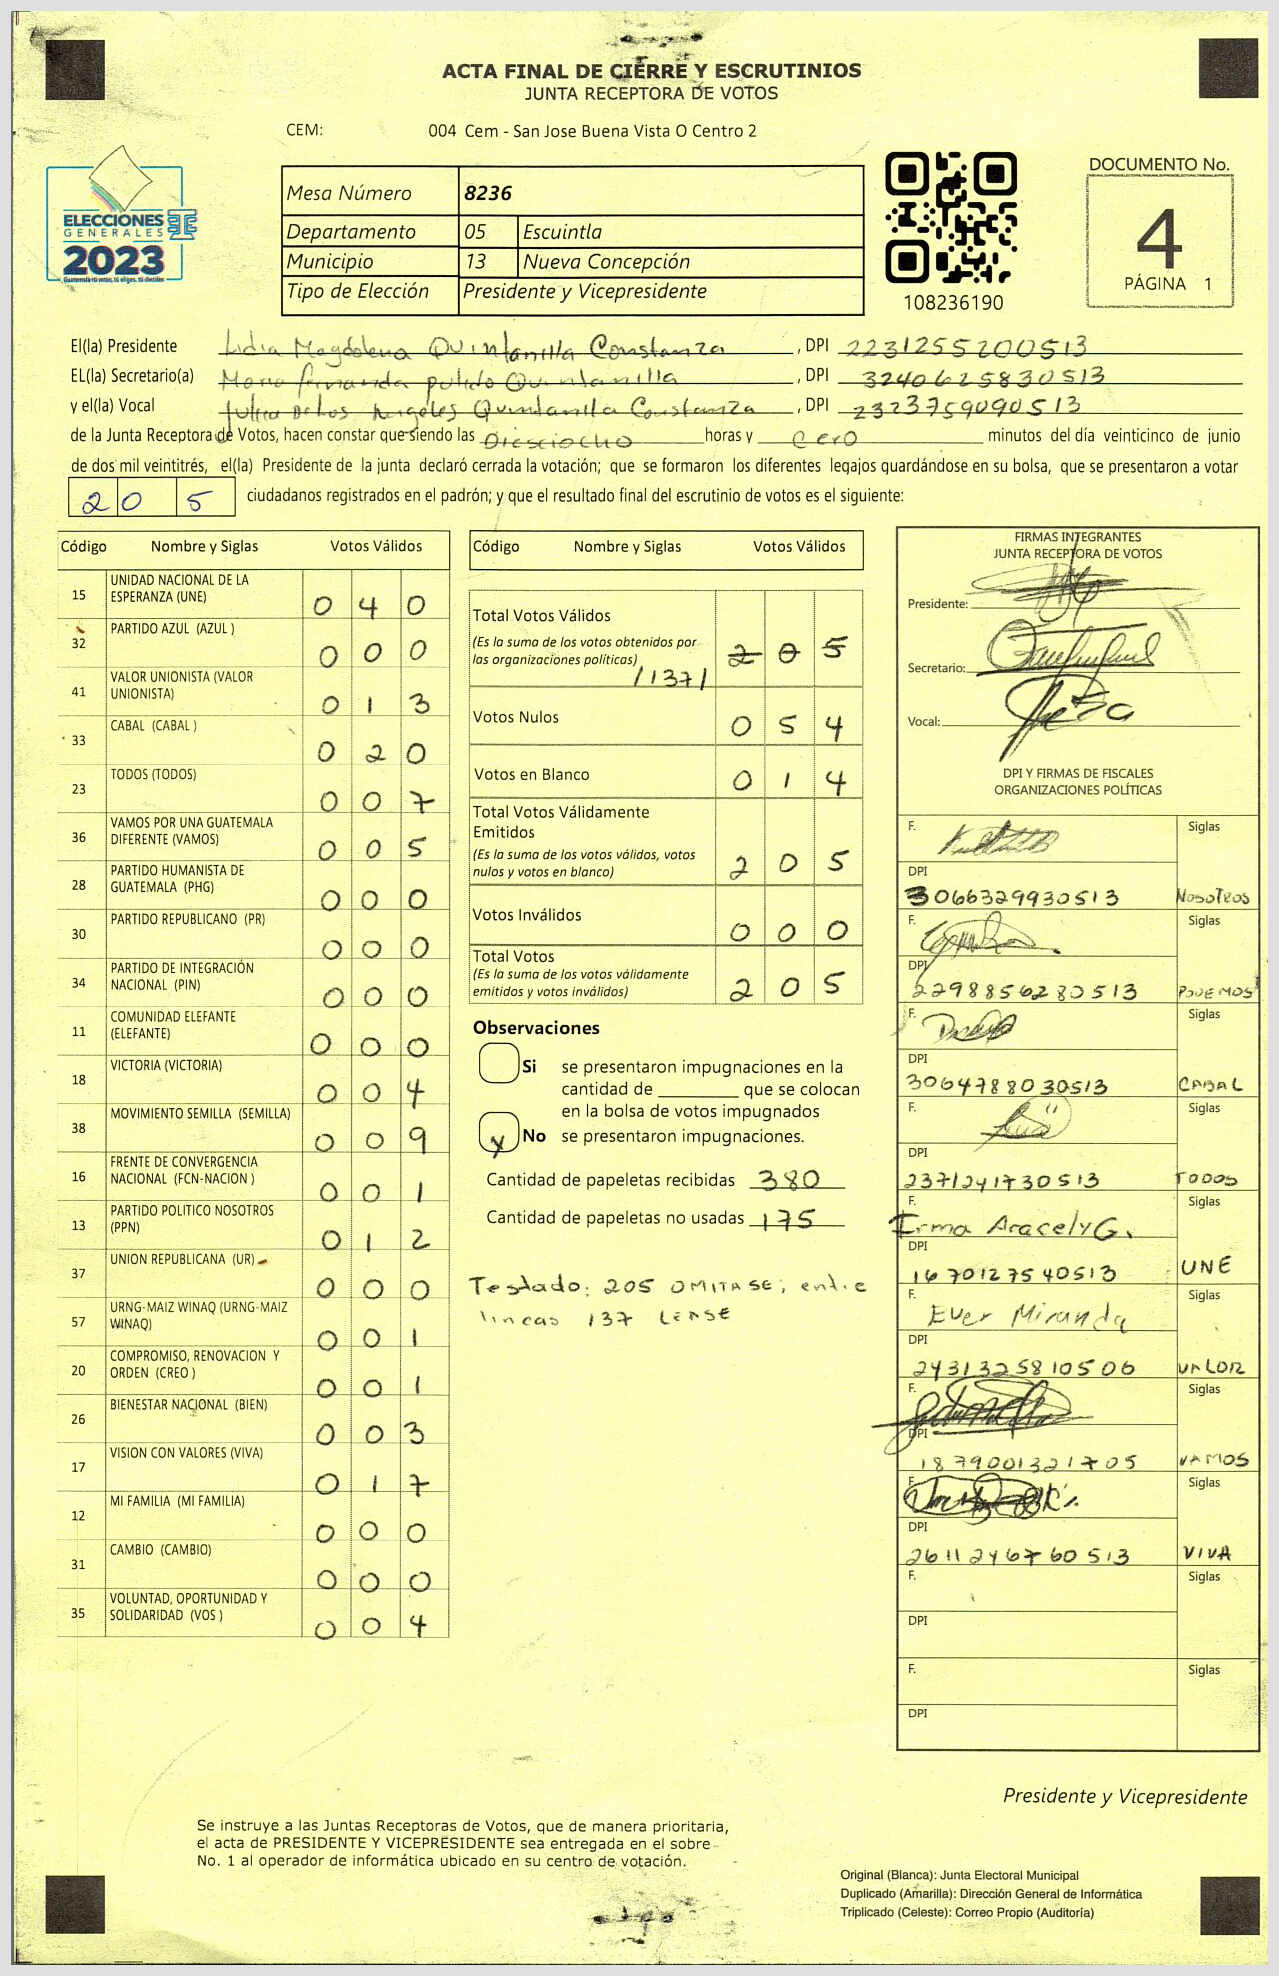 ACTA FINAL DE CIERRE Y ESCRUTINIOS
JUNTA RECEPTORA DE VOTOS
CEM: 004 Cem - San Jose Buena Vista O Centro 2
ELECCIONES
GENERALES
2023
Guatemala tú votas, tú eliges, tú decides
Mesa Número 8236
Departamento 05 Escuintla
Municipio 13 Nueva Concepción
Tipo de Elección Presidente y Vicepresidente
108236190
DOCUMENTO No.
4
PÁGINA 1
El(la) Presidente Lidia Magdalena Quintanilla Constanza , DPI 2231255200513
EL(la) Secretario(a) Maria fernanda pulido Quintanilla , DPI 3240625830513
y el(la) Vocal Julia De Los Angeles Quintanilla Constanza , DPI 2323759090513
de la Junta Receptora de Votos, hacen constar que siendo las Diesciocho horas y cero minutos del día veinticinco de junio
de dos mil veintitrés, el(la) Presidente de la junta declaró cerrada la votación; que se formaron los diferentes legajos guardándose en su bolsa, que se presentaron a votar
2 0 5 ciudadanos registrados en el padrón; y que el resultado final del escrutinio de votos es el siguiente:
Código Nombre y Siglas Votos Válidos
15 UNIDAD NACIONAL DE LA ESPERANZA (UNE) 0 4 0
32 PARTIDO AZUL (AZUL ) 0 0 0
41 VALOR UNIONISTA (VALOR UNIONISTA) 0 1 3
33 CABAL (CABAL ) 0 2 0
23 TODOS (TODOS) 0 0 7
36 VAMOS POR UNA GUATEMALA DIFERENTE (VAMOS) 0 0 5
28 PARTIDO HUMANISTA DE GUATEMALA (PHG) 0 0 0
30 PARTIDO REPUBLICANO (PR) 0 0 0
34 PARTIDO DE INTEGRACIÓN NACIONAL (PIN) 0 0 0
11 COMUNIDAD ELEFANTE (ELEFANTE) 0 0 0
18 VICTORIA (VICTORIA) 0 0 4
38 MOVIMIENTO SEMILLA (SEMILLA) 0 0 9
16 FRENTE DE CONVERGENCIA NACIONAL (FCN-NACION ) 0 0 1
13 PARTIDO POLITICO NOSOTROS (PPN) 0 1 2
37 UNION REPUBLICANA (UR) 0 0 0
57 URNG-MAIZ WINAQ (URNG-MAIZ WINAQ) 0 0 1
20 COMPROMISO, RENOVACION Y ORDEN (CREO ) 0 0 1
26 BIENESTAR NACIONAL (BIEN) 0 0 3
17 VISION CON VALORES (VIVA) 0 1 7
12 MI FAMILIA (MI FAMILIA) 0 0 0
31 CAMBIO (CAMBIO) 0 0 0
35 VOLUNTAD, OPORTUNIDAD Y SOLIDARIDAD (VOS ) 0 0 4
Código Nombre y Siglas Votos Válidos
Total Votos Válidos
(Es la suma de los votos obtenidos por
las organizaciones políticas) 2 0 5
/137/
Votos Nulos 0 5 4
Votos en Blanco 0 1 4
Total Votos Válidamente
Emitidos
(Es la suma de los votos válidos, votos
nulos y votos en blanco) 2 0 5
Votos Inválidos 0 0 0
Total Votos
(Es la suma de los votos válidamente
emitidos y votos inválidos) 2 0 5
Observaciones
Si se presentaron impugnaciones en la
cantidad de ________ que se colocan
en la bolsa de votos impugnados
X No se presentaron impugnaciones.
Cantidad de papeletas recibidas 380
Cantidad de papeletas no usadas 175
Testado: 205 OMITASE; entre
lineas 137 LEASE
FIRMAS INTEGRANTES
JUNTA RECEPTORA DE VOTOS
Presidente:
Secretario:
Vocal:
DPI Y FIRMAS DE FISCALES
ORGANIZACIONES POLÍTICAS
F. Siglas
DPI
3066329930513 NOSOTROS
F. Siglas
DPI
2298856280513 PODEMOS
F. Siglas
DPI
3064788030513 CABAL
F. Siglas
DPI
2371241730513 TODOS
F. Siglas
Irma Aracely G.
DPI
1670127540513 UNE
F. Siglas
Ever Miranda
DPI
2431325810506 VALOR
F. Siglas
DPI
1879001321705 VAMOS
F. Siglas
DPI
2611246760513 VIVA
F. Siglas
DPI
F. Siglas
DPI
Presidente y Vicepresidente
Se instruye a las Juntas Receptoras de Votos, que de manera prioritaria,
el acta de PRESIDENTE Y VICEPRESIDENTE sea entregada en el sobre
No. 1 al operador de informática ubicado en su centro de votación.
Original (Blanca): Junta Electoral Municipal
Duplicado (Amarilla): Dirección General de Informática
Triplicado (Celeste): Correo Propio (Auditoría)